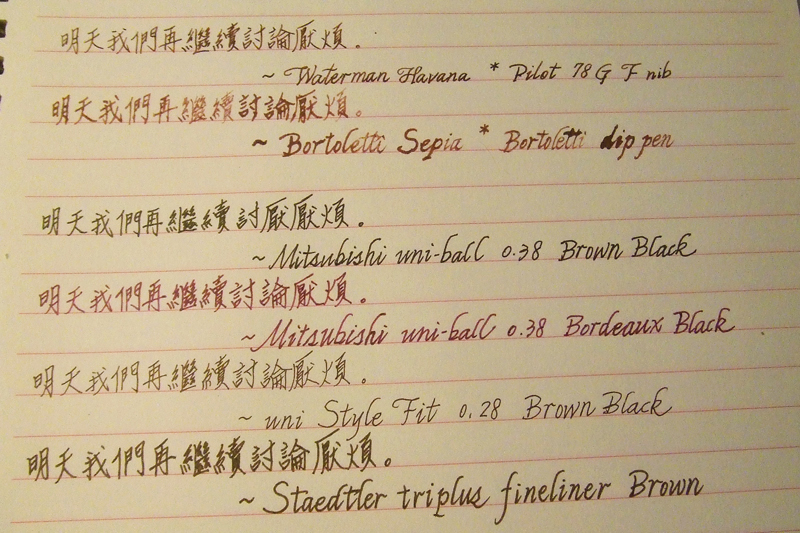 明天我們再繼續討論厭煩。
~ Waterman Havana * Pilot 78 G F nib
明天我們再繼續討論厭煩。
~ Bortoletti Sepia * Bortoletti dip pen
明天我們再繼續討厭厭煩。
~ Mitsubishi uni-ball 0.38 Brown Black
明天我們再繼續討論厭煩。
~ Mitsubishi uni-ball 0.38 Bordeaux Black
明天我們再繼續討論厭煩。
~ uni Style Fit 0.28 Brown Black
明天我們再繼續討論厭煩。
~ Staedtler triplus fineliner Brown